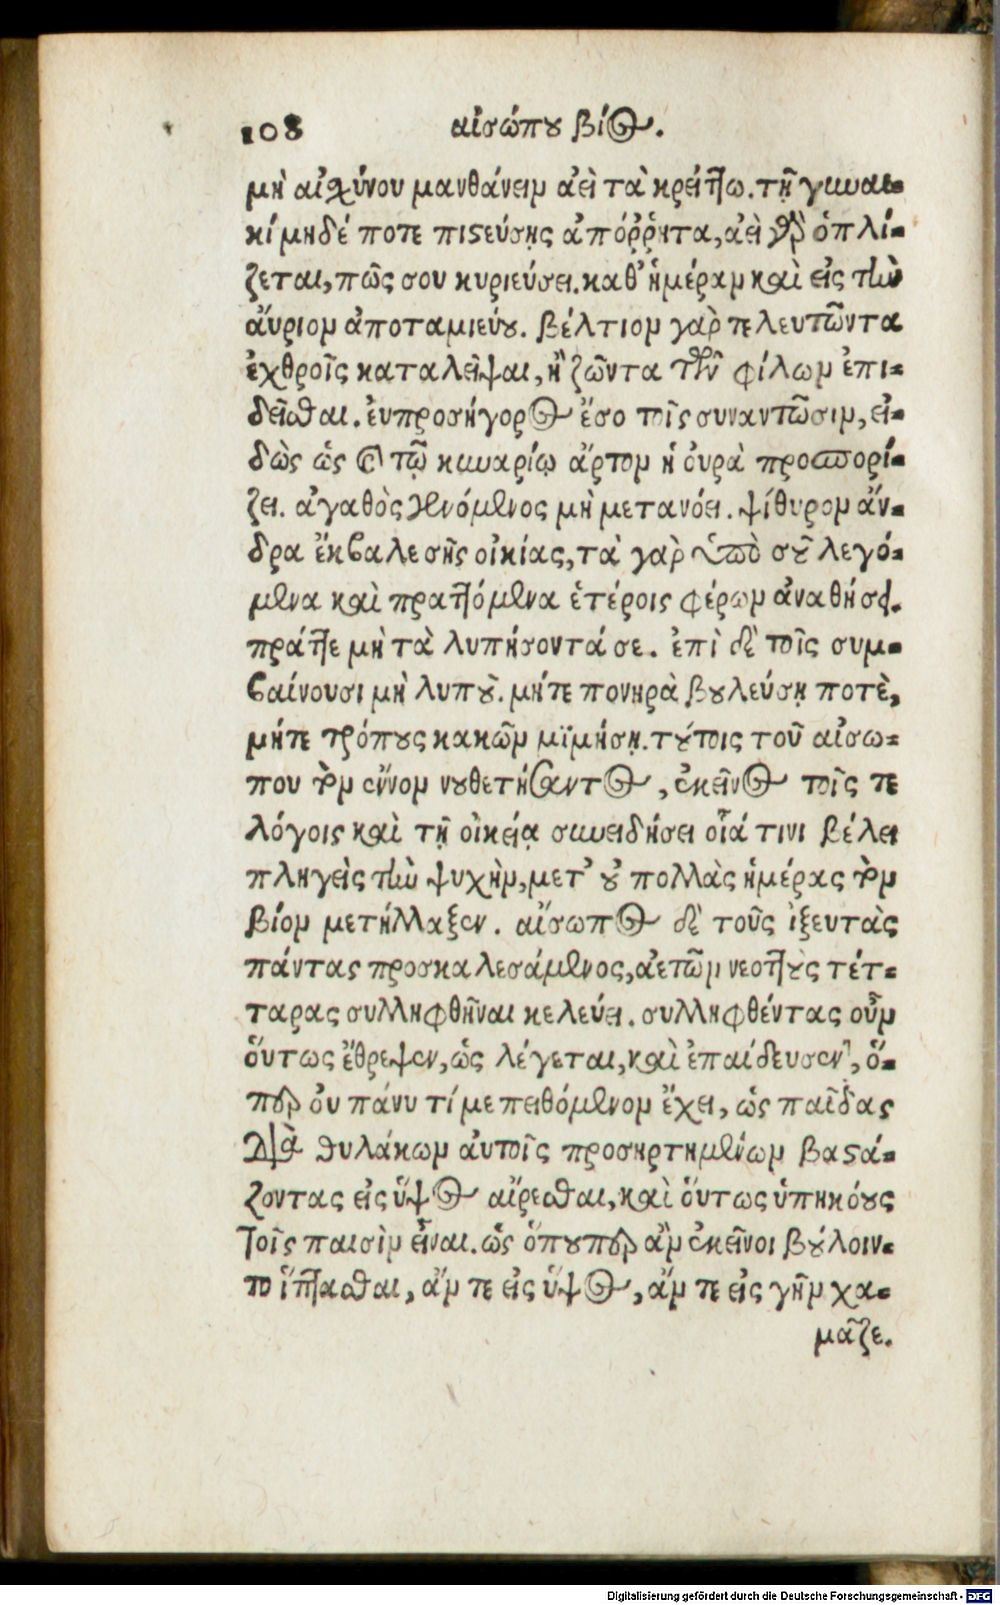 108 αἰσώπου βίος.
μὴ αἰσχύνου μανθάνειν ἀεὶ τὰ κρείττω. τῇ γυναι-
κί μηδέ ποτε πιστεύσῃς ἀπόῤῥητα, ἀεὶ γὰρ ὁπλί-
ζεται, πῶς σου κυριεύσει. καθ' ἡμέραν καὶ εἰς τὴν
ἄυριον ἀποταμιεύου. βέλτιον γὰρ τελευτῶντα
ἐχθροῖς καταλεῖψαι, ἢ ζῶντα τῶν φίλων ἐπι-
δεῖσθαι. ἐυπροσήγορος ἔσο τοῖς συναντῶσιν, εἰ-
δὼς ὡς καὶ τῷ κυναρίῳ ἄρτον ἡ ὀυρὰ προσπορί-
ζει. ἀγαθὸς γενόμενος μὴ μετανόει. ψίθυρον ἄν-
δρα ἔκβαλε σῆς οἰκίας, τὰ γὰρ ὑπὸ σοῦ λεγό-
μενα καὶ πραττόμενα ἑτέροις φέρων ἀναθήσει.
πράττε μὴ τὰ λυπήσοντά σε. ἐπὶ δὲ τοῖς συμ-
βαίνουσι μὴ λυποῦ. μήτε πονηρὰ βουλεύσῃ ποτὲ,
μήτε τρόπους κακῶν μϊμήσῃ. τούτοις τοῦ αἰσώ-
που τὸν ἔννον νουθετήσαντος, ἐκεῖνος τοῖς τε
λόγοις καὶ τῇ οἰκείᾳ συνειδήσει οἷά τινι βέλει
πληγεὶς τὴν ψυχὴν, μετ' οὐ πολλὰς ἡμέρας τὸν
βίον μετήλλαξεν. αἴσωπος δὲ τοῦς ἰξευτὰς
πάντας προσκαλεσάμενος, ἀετῶν νεοττοὺς τέτ-
ταρας συλληφθῆναι κελεύει. συλληφθέντας οὖν
ὅυτως ἔθρεψεν, ὡς λέγεται, καὶ ἐπαίδευσεν, ὅ-
περ ὀυ πάνυ τί με πειθόμενον ἔχει, ὡς παῖδας
διὰ θυλάκων ἀυτοῖς προσηρτημένων βαστά-
ζοντας εἰς ὕψος αἴρεσθαι, καὶ ὅυτως ὑπηκόους
τοῖς παισὶν εἶναι. ὡς ὅπουπερ ἂν ἐκεῖνοι βούλοιν-
το ἵπτασθαι, ἄν τε εἰς ὕψος, ἄν τε εἰς γῆν χα-
μᾶζε.
Digitalisierung gefördert durch die Deutsche Forschungsgemeinschaft - DFG